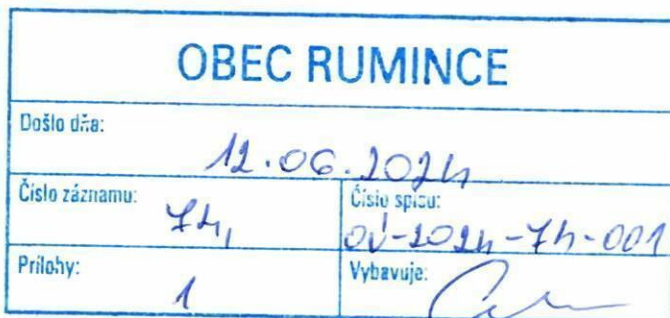 OBEC RUMINCE
Došlo dňa:
12.06.2024
Číslo záznamu:
74,
Číslo spisu:
OÚ-2024-74-001
Prílohy:
1
Vybavuje: